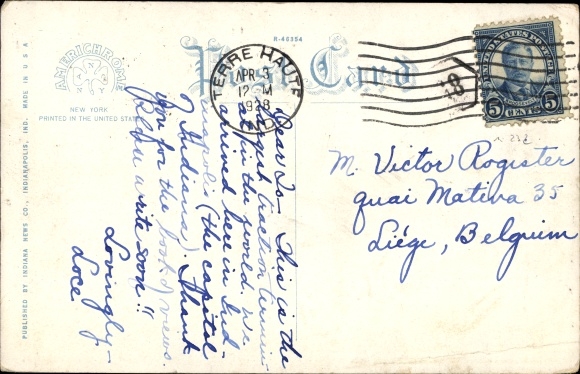 MADE IN U S A
PUBLISHED BY INDIANA NEWS CO., INDIANAPOLIS, IND.
AMERICHROME
NEW YORK
PRINTED IN THE UNITED STATES
R-48354
Post Card
TERRE HAUTE
APR 3
12 M
1928
IND.
UNITED STATES POSTAGE
5 CENTS 5
M. Victor Rogister
quai Mativa 35
Liége, Belguim
Dear Jo— This is the
largest traction termin-
al in the world. We
arrived here in Ind-
ianapolis (the capitol
of Indiana). Thank
you for the book of views.
Please write soon!!
Lovingly—
Loce